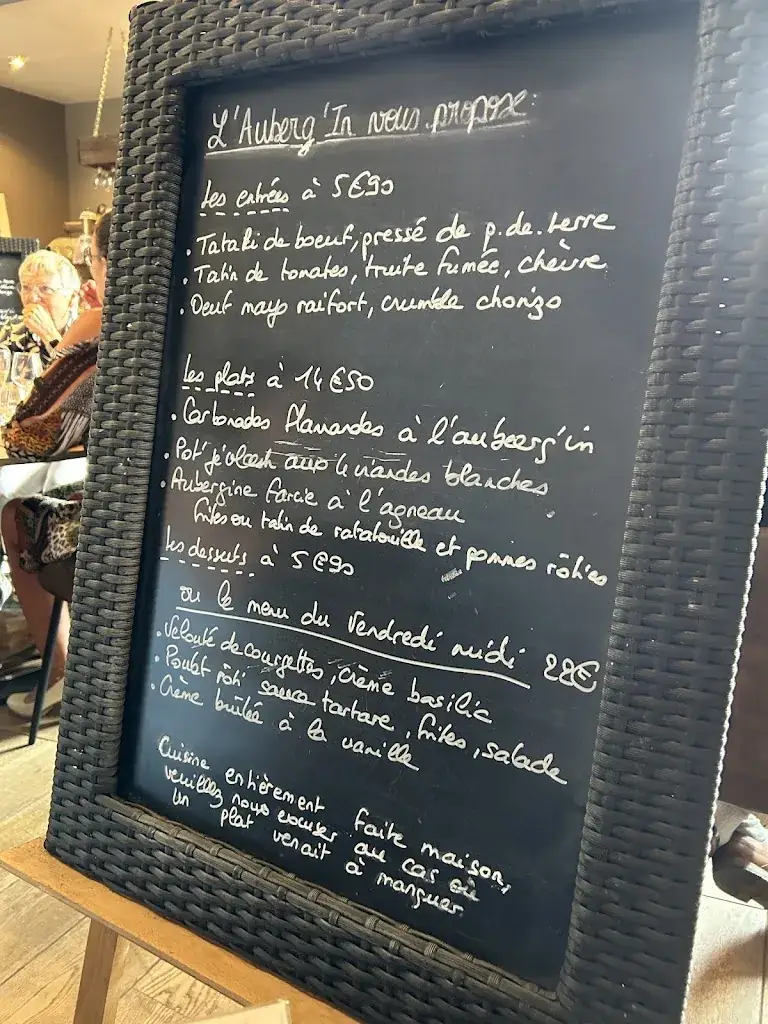 L'Auberg'In vous propose:
Les entrées à 5€90
. Tataki de boeuf, pressé de p. de. terre
. Tatin de tomates, truite fumée, chèvre
. Oeuf mayo raifort, crumble chorizo
Les plats à 14€50
. Carbonades flamandes à l'auberg'in
. Pot' je vleesh aux 4 viandes blanches
. Aubergine farcie à l'agneau
frites ou tatin de ratatouille et pommes rôties
Les desserts à 5€90
ou le menu du Vendredi midi 22€
. Velouté de courgettes, crème basilic
. Poulet rôti sauce tartare, frites, salade
. Crème brûlée à la vanille
Cuisine entièrement faite maison,
veuillez nous excuser au cas où
un plat venait à manquer.